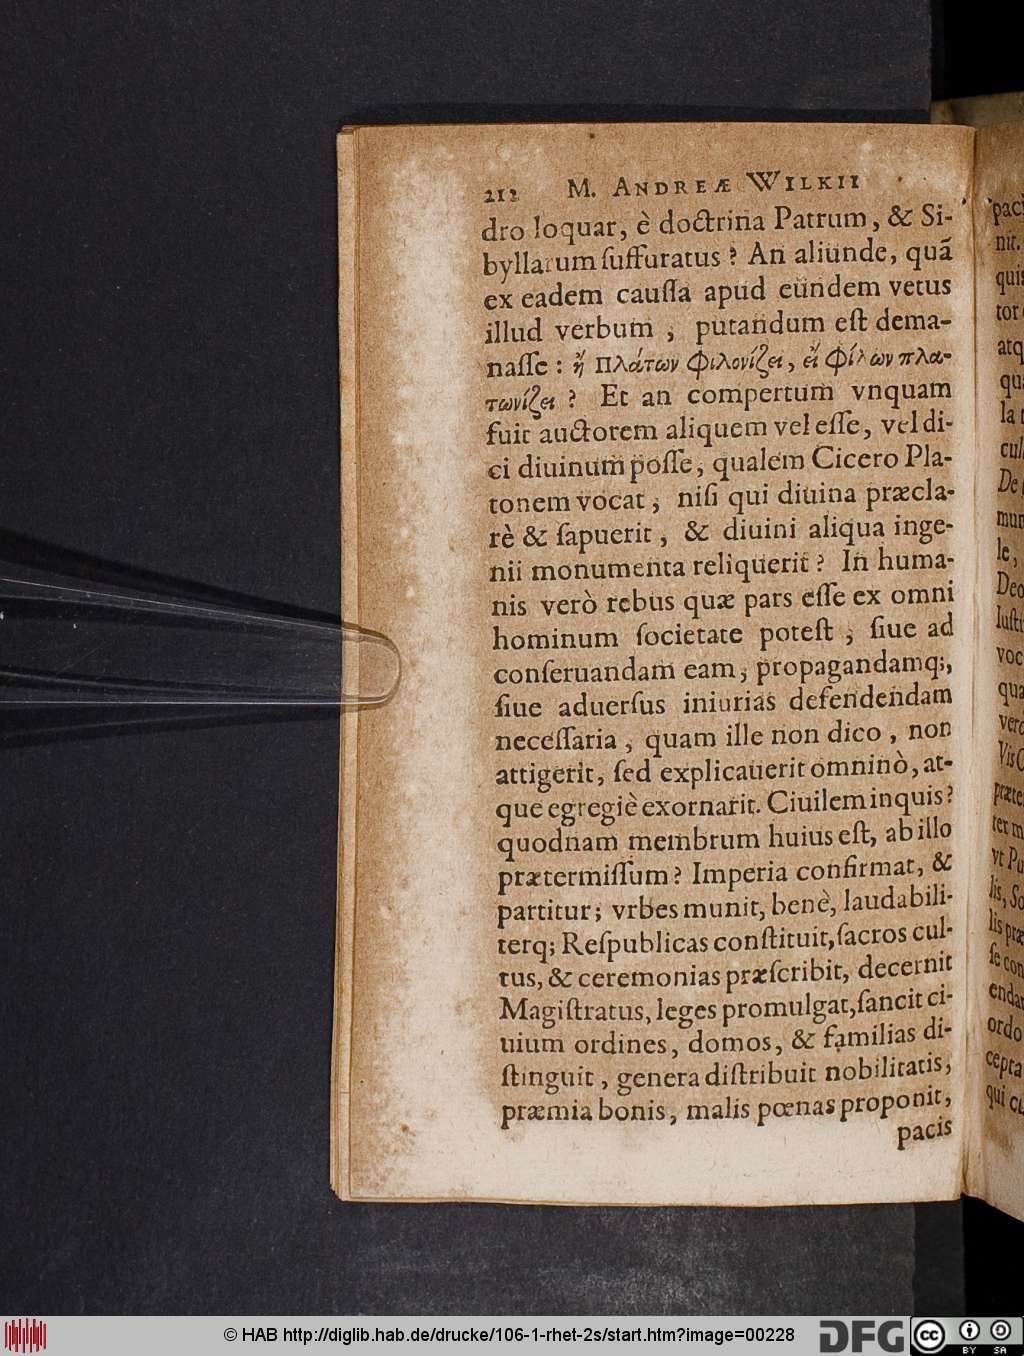 212 M. ANDREÆ WILKII
dro loquar, è doctrina Patrum, & Si-
byllarum ſuffuratus? An aliunde, quã
ex eadem cauſſa apud eundem vetus
illud verbum, putandum eſt dema-
naſſe: ἢ Πλάτων φιλονίζει, εἲ φίλων πλα-
τωνίζει? Et an compertum vnquam
fuit auctorem aliquem vel eſſe, vel di-
ci diuinum poſſe, qualem Cicero Pla-
tonem vocat, niſi qui diuina præcla-
rè & ſapuerit, & diuini aliqua inge-
nii monumenta reliquerit? In huma-
nis verò rebus quæ pars eſſe ex omni
hominum ſocietate poteſt, ſiue ad
conſeruandam eam, propagandamq;,
ſiue aduerſus iniurias defendendam
neceſſaria, quam ille non dico, non
attigerit, ſed explicauerit omninò, at-
que egregiè exornarit. Ciuilem inquis?
quodnam membrum huius eſt, ab illo
prætermiſſum? Imperia confirmat, &
partitur; vrbes munit, benè, laudabili-
terq; Reſpublicas conſtituit, ſacros cul-
tus, & ceremonias præſcribit, decernit
Magiſtratus, leges promulgat, ſancit ci-
uium ordines, domos, & familias di-
ſtinguit, genera diſtribuit nobilitatis,
præmia bonis, malis pœnas proponit,
pacis
paci
nit.
quis
tor
atq
qu
la
cul
De
mun
le,
Deo
Iuſti
voc
qua
verò
Vis
præte
ter m
vt Pu
lis, So
lis præ
ſe con
endar
ordo
cepta
qui cu
© HAB http://diglib.hab.de/drucke/106-1-rhet-2s/start.htm?image=00228
DFG
cc BY SA